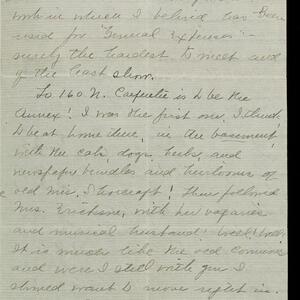 work in which I behind has been
used for "General Expenses" -
surely the hardest to meet and
of the least show.
To 160 N. Carpenter is to be the
Annex! I was the first one, I think,
to be at home there, in the basement
with the cats, dogs, herbs, and
newspaper bundles and heirlooms of
old Mrs. Thorcraft! Then followed
Mrs. Erickson, with her vagaries
and musical husband! Well! Well!
It is much like the old Commons
and were I still with you I
should want to move right in.